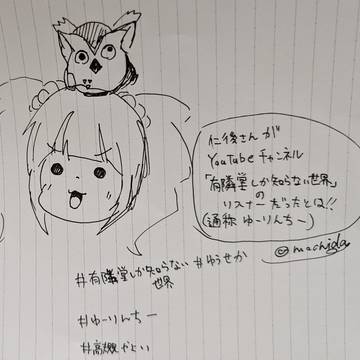 仁後さんが
YouTubeチャンネル
「有隣堂しか知らない世界」
の
リスナーだったとは!!
(通称 ゆーりんちー)
@machida
#有隣堂しか知らない
世界
#ゆうせか
#ゆーりんちー
#高槻やよい